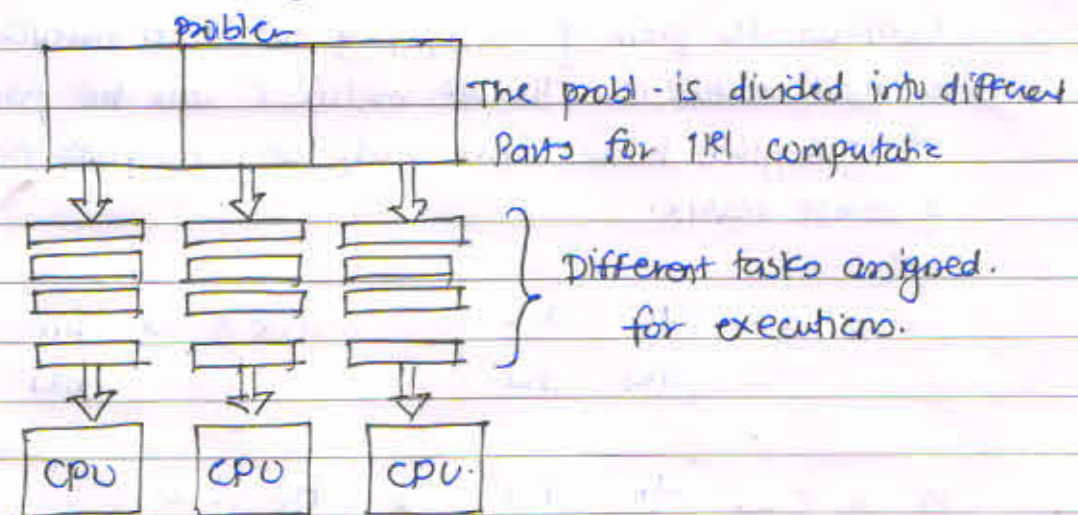 problem
The probl. is divided into different
Parts for ||el computatn
Different tasks assigned.
for executions.
CPU CPU CPU.